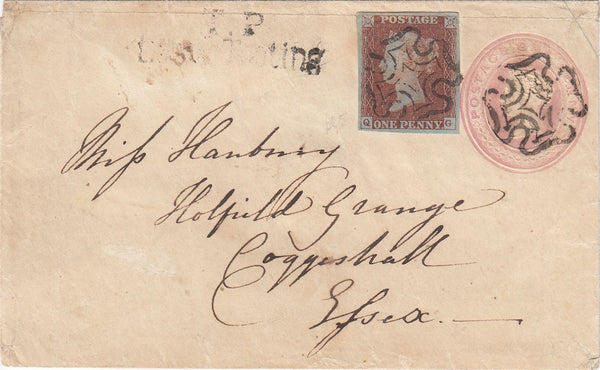 T.P
POSTAGE
Q G
ONE PENNY
POSTAGE
Miss Hanbury
Holfield Grange
Coggeshall
Essex.